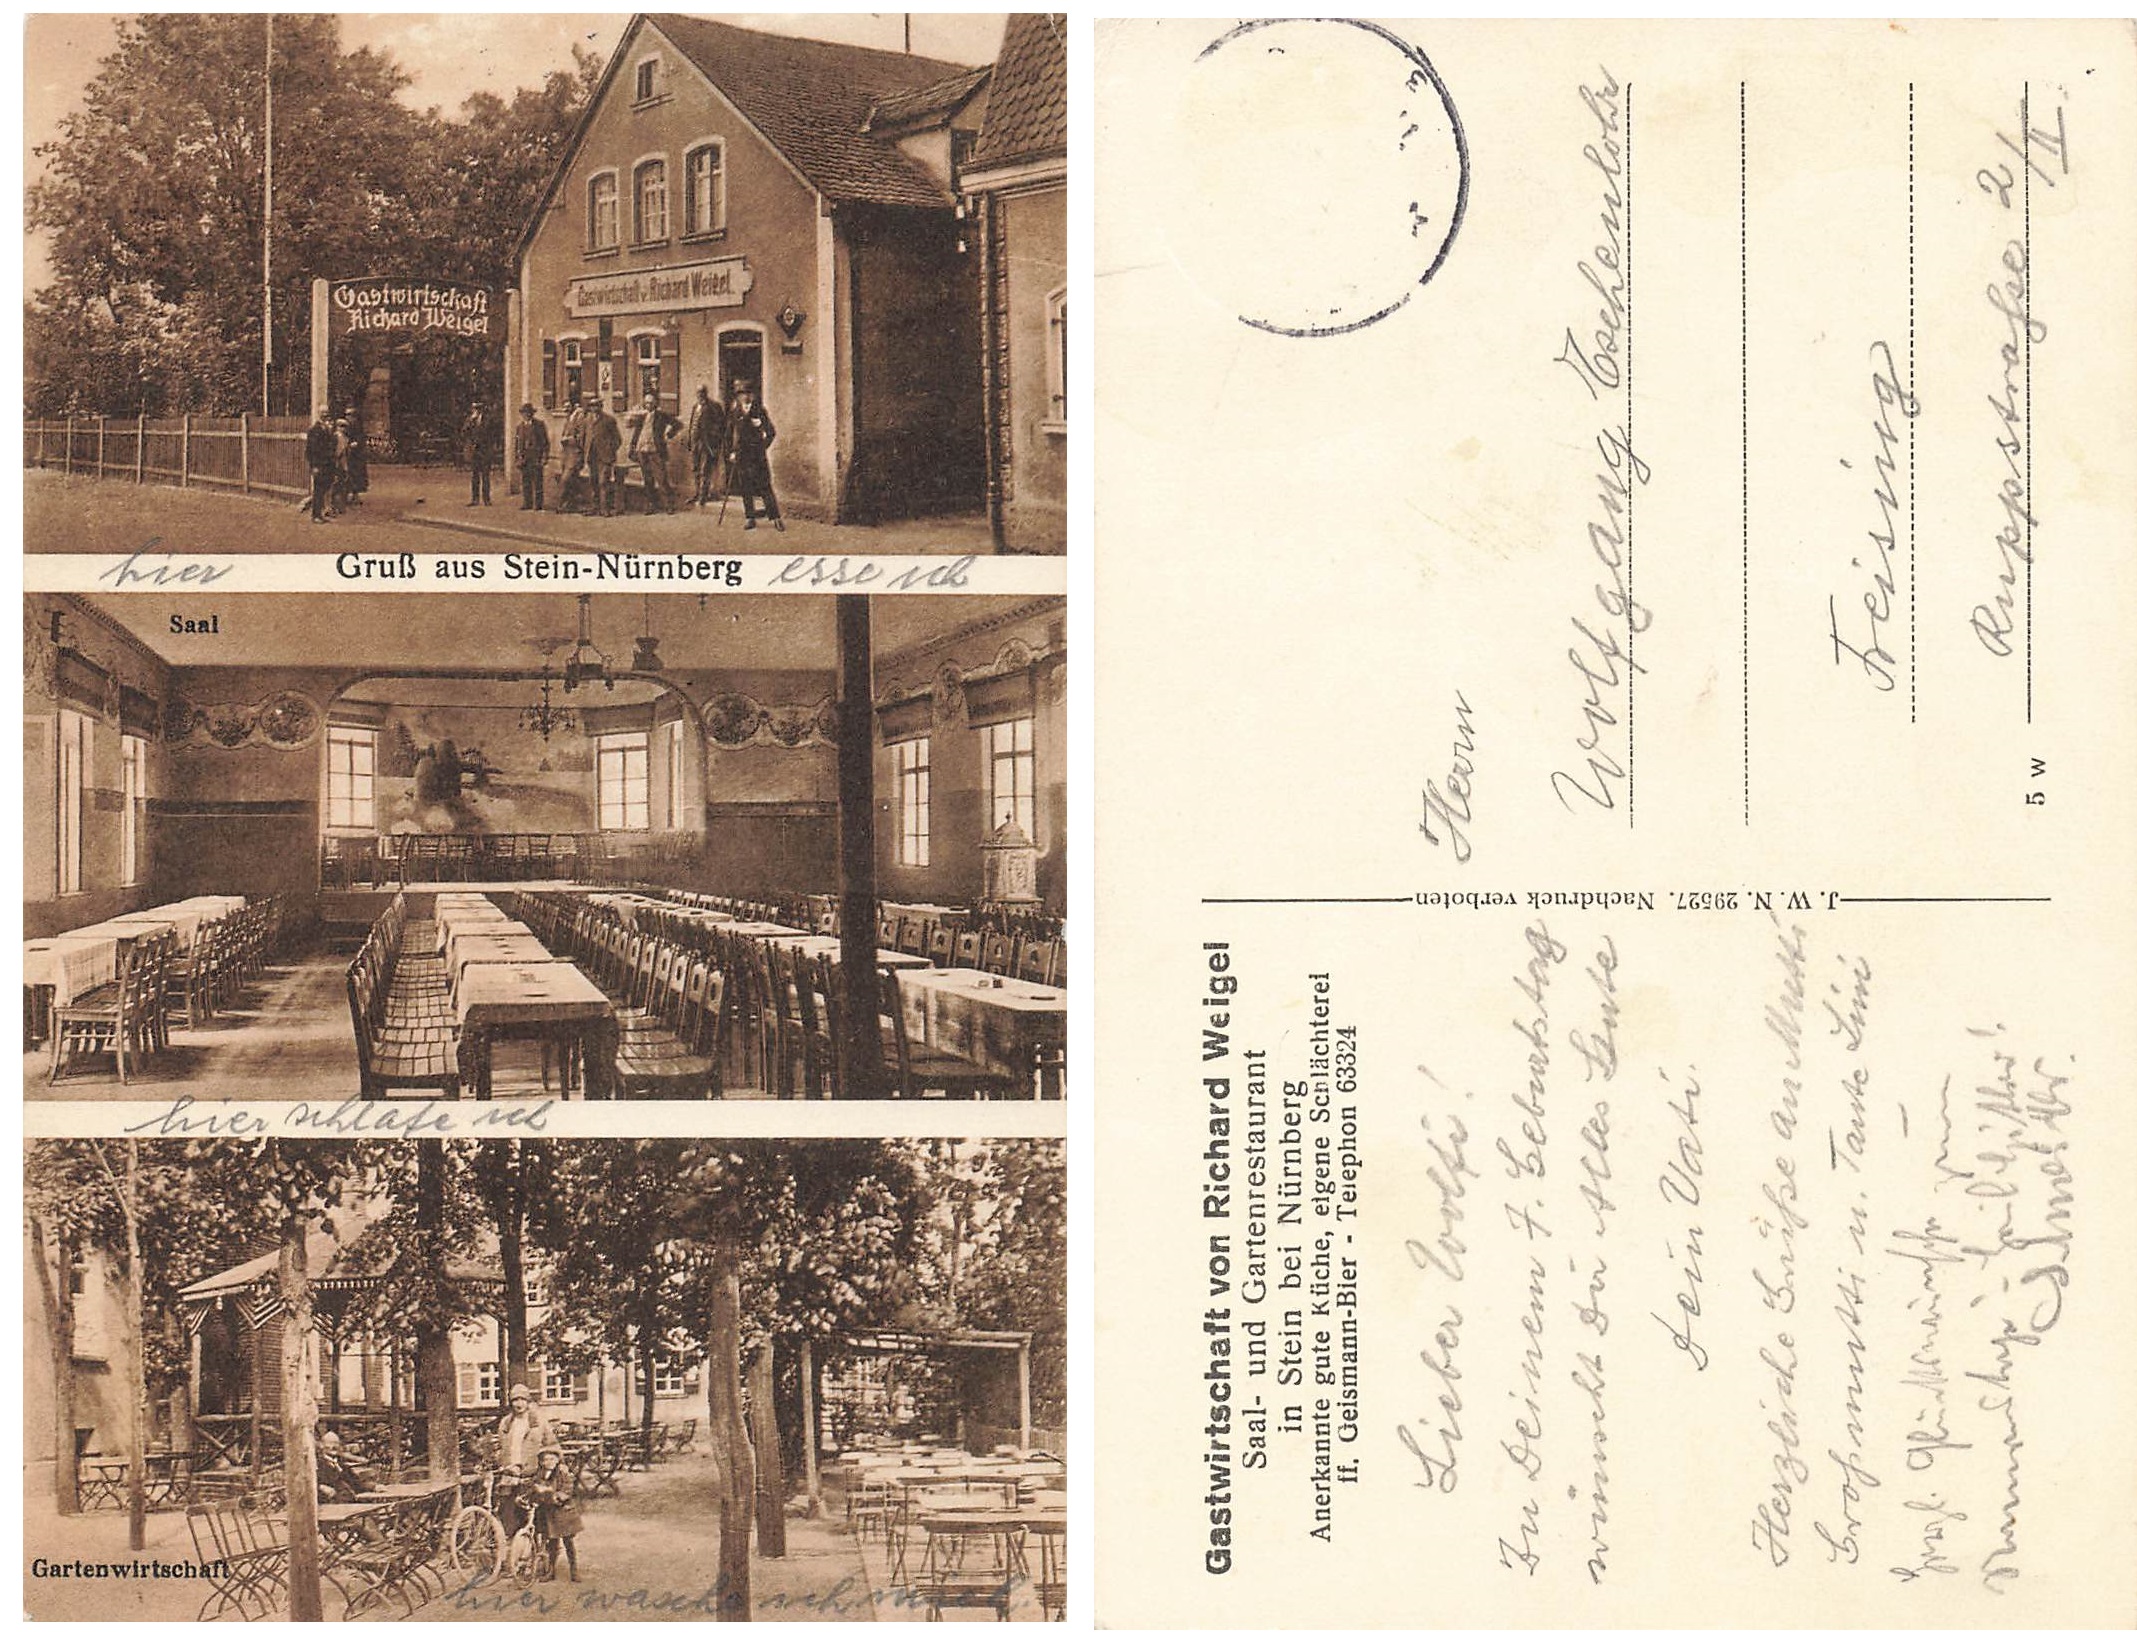 Gastwirtschaft
Richard Weigel
Gastwirtschaft v. Richard Weigel.
hier Gruß aus Stein-Nürnberg esse ich
Saal
hier schlafe ich
Gartenwirtschaft
hier wasche ich mich.
Gastwirtschaft von Richard Weigel
Saal- und Gartenrestaurant
in Stein bei Nürnberg
Anerkannte gute Küche, eigene Schlächterei
ff. Geismann-Bier - Telephon 63324
Lieber Wolfi!
Zu Deinem 7. Geburtstag
wünscht Dir Alles Gute
Dein Vati.
Herzliche Grüße an Mutti
Großmutti u. Tante Lini
Herzl. Glückwünsche zum
J. W. N. 29527. Nachdruck verboten
Herrn
Wolfgang Eschenlohr
Freising
Ruppstraße 2/II
5 W